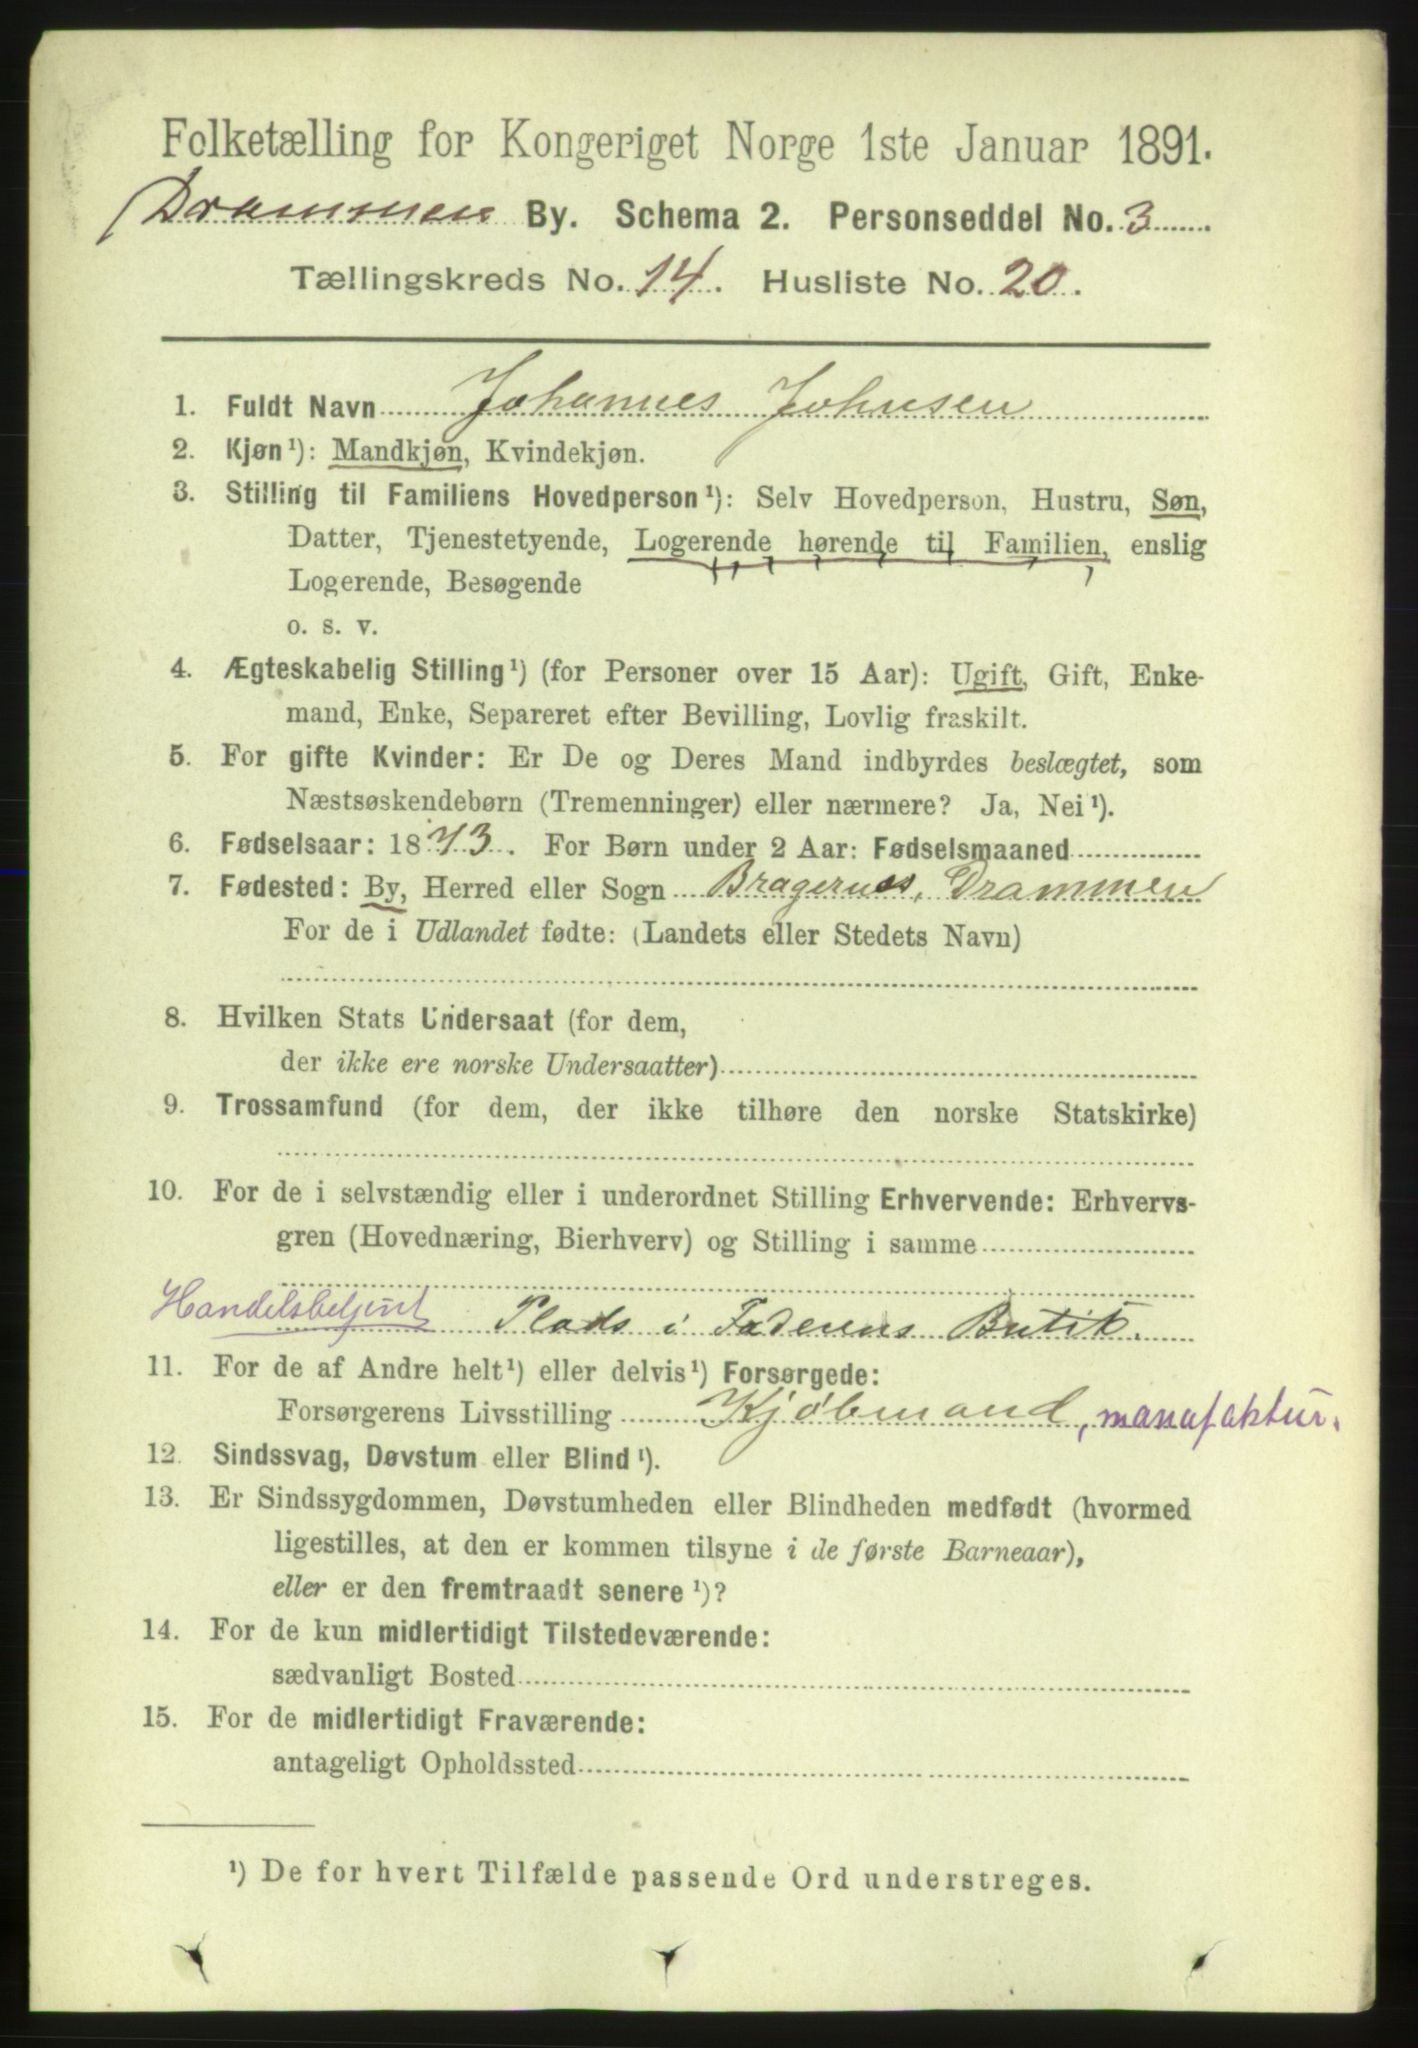 Folketælling for Kongeriget Norge 1ste Januar 1891.
Drammen By. Schema 2. Personseddel No. 3
Tællingskreds No. 14. Husliste No. 20.
1. Fuldt Navn Johannes Johnsen
2. Kjøn¹): Mandkjøn, Kvindekjøn.
3. Stilling til Familiens Hovedperson¹): Selv Hovedperson, Hustru, Søn,
Datter, Tjenestetyende, Logerende hørende til Familien, enslig
Logerende, Besøgende
o. s. v.
4. Ægteskabelig Stilling¹) (for Personer over 15 Aar): Ugift, Gift, Enke-
mand, Enke, Separeret efter Bevilling, Lovlig fraskilt.
5. For gifte Kvinder: Er De og Deres Mand indbyrdes beslægtet, som
Næstsøskendebørn (Tremenninger) eller nærmere? Ja, Nei¹).
6. Fødselsaar: 1873. For Børn under 2 Aar: Fødselsmaaned
7. Fødested: By, Herred eller Sogn Bragernes, Drammen
For de i Udlandet fødte: (Landets eller Stedets Navn)
8. Hvilken Stats Undersaat (for dem,
der ikke ere norske Undersaatter)
9. Trossamfund (for dem, der ikke tilhøre den norske Statskirke)
10. For de i selvstændig eller i underordnet Stilling Erhvervende: Erhvervs-
gren (Hovednæring, Bierhverv) og Stilling i samme
Handelsbetjent Plads i Faderens Butik.
11. For de af Andre helt¹) eller delvis¹) Forsørgede:
Forsørgerens Livsstilling Kjøbmand, manufaktur.
12. Sindssvag, Døvstum eller Blind¹).
13. Er Sindssygdommen, Døvstumheden eller Blindheden medfødt (hvormed
ligestilles, at den er kommen tilsyne i de første Barneaar),
eller er den fremtraadt senere¹)?
14. For de kun midlertidigt Tilstedeværende:
sædvanligt Bosted
15. For de midlertidigt Fraværende:
antageligt Opholdssted
¹) De for hvert Tilfælde passende Ord understreges.